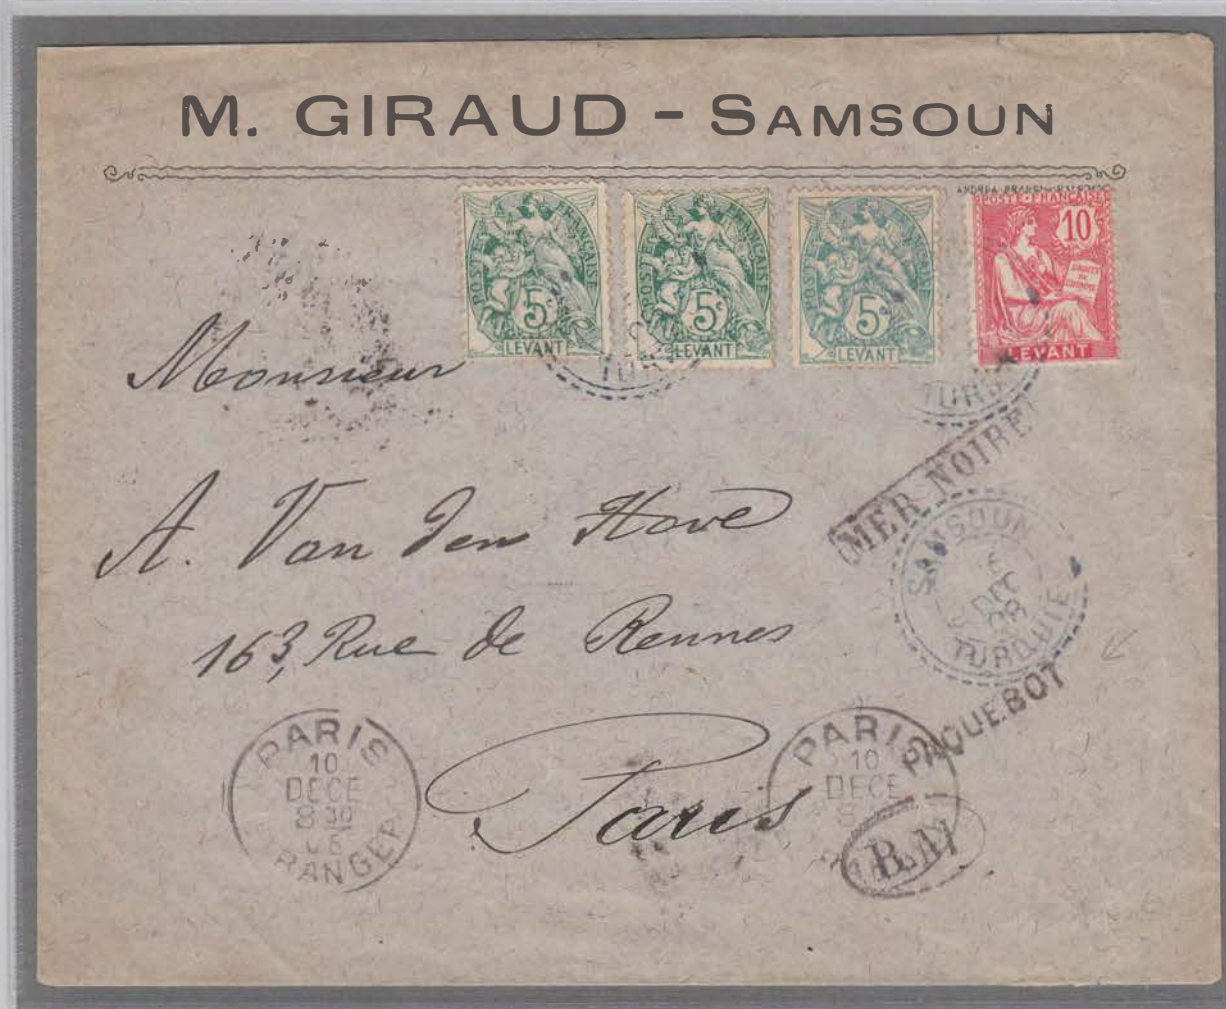 M. GIRAUD - SAMSOUN
POSTE FRANÇAISE
5c
LEVANT
POSTE FRANÇAISE
5c
LEVANT
POSTE FRANÇAISE
5c
LEVANT
POSTE FRANÇAISE
10
DROITS DE L'HOMME
LEVANT
Monsieur
A. Van den Hove
163, Rue de Rennes
Paris
MER NOIRE
SAMSOUN
6
DEC
TURQUIE
PAQUEBOT
PARIS
10
DECE
8 30
ETRANGER
PARIS
10
DECE
B.M